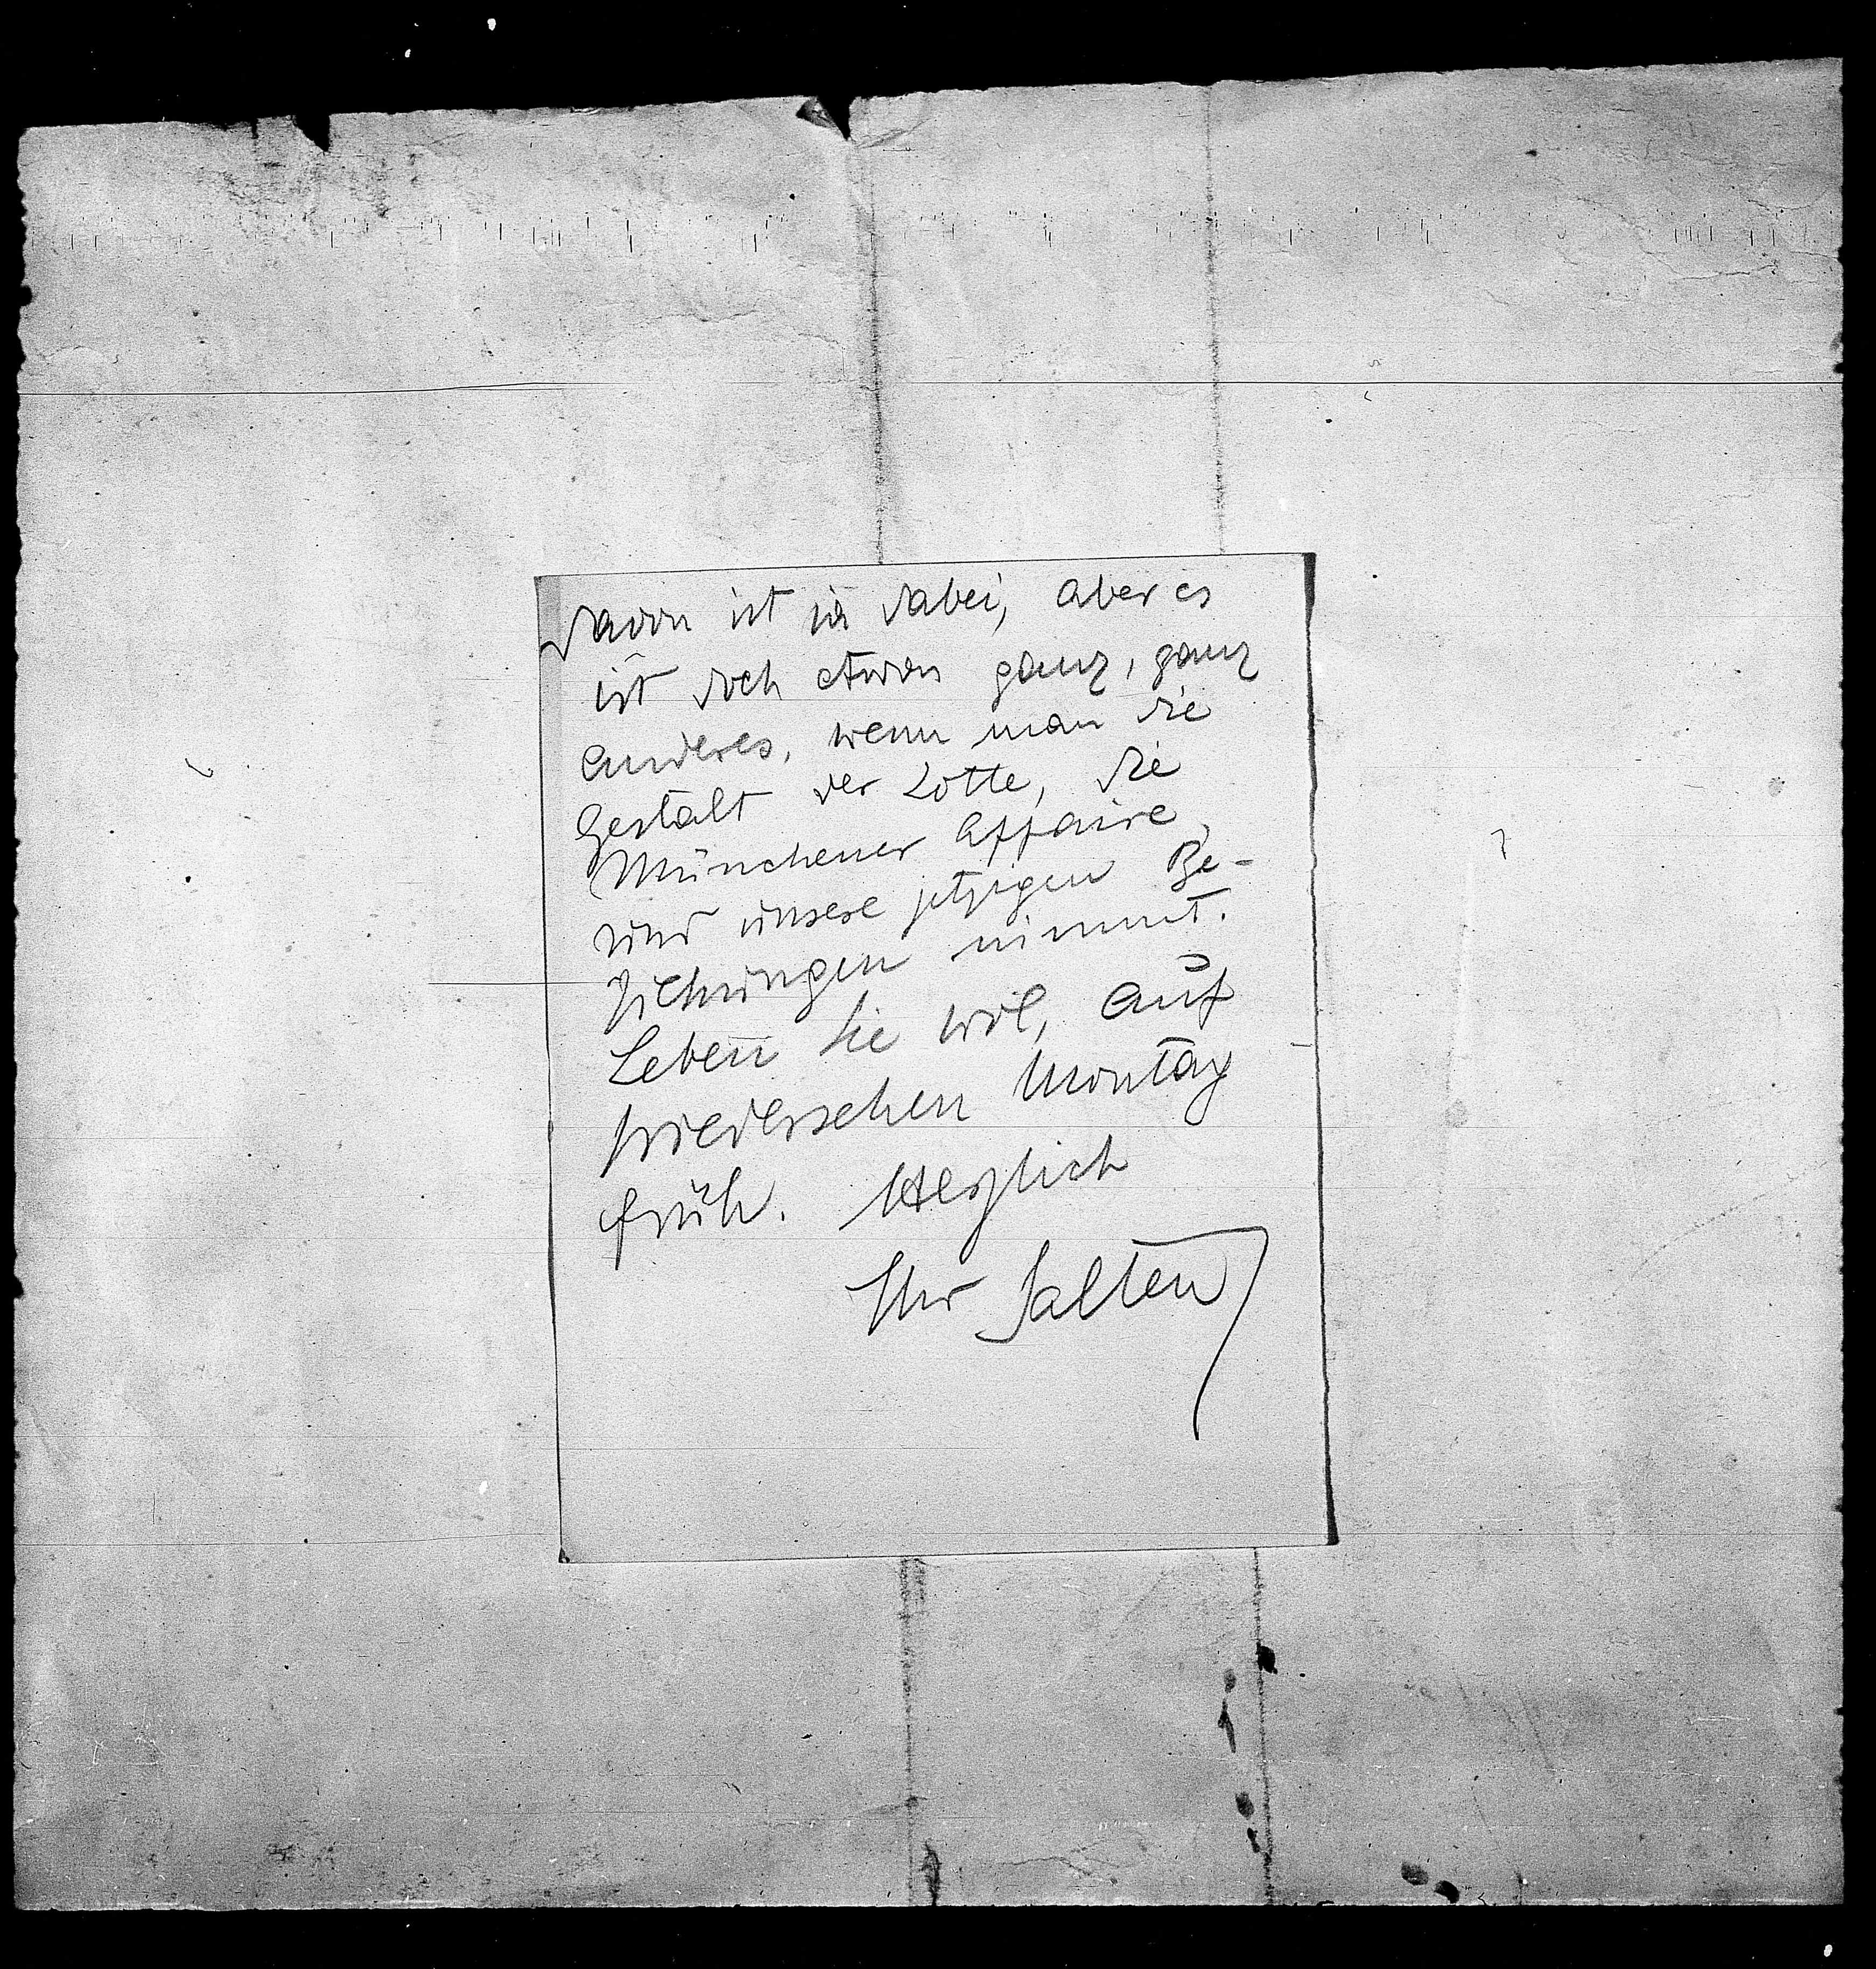 davon ist ja dabei, aber es
ist doch etwas ganz, ganz
anderes, wenn man die
Gestalt der Lotte, die
Münchener Affaire,
und unsere jetzigen Be-
ziehungen nimmt.
Leben Sie wol, auf
wiedersehen Montag
früh. Herzlich
Ihr Salten